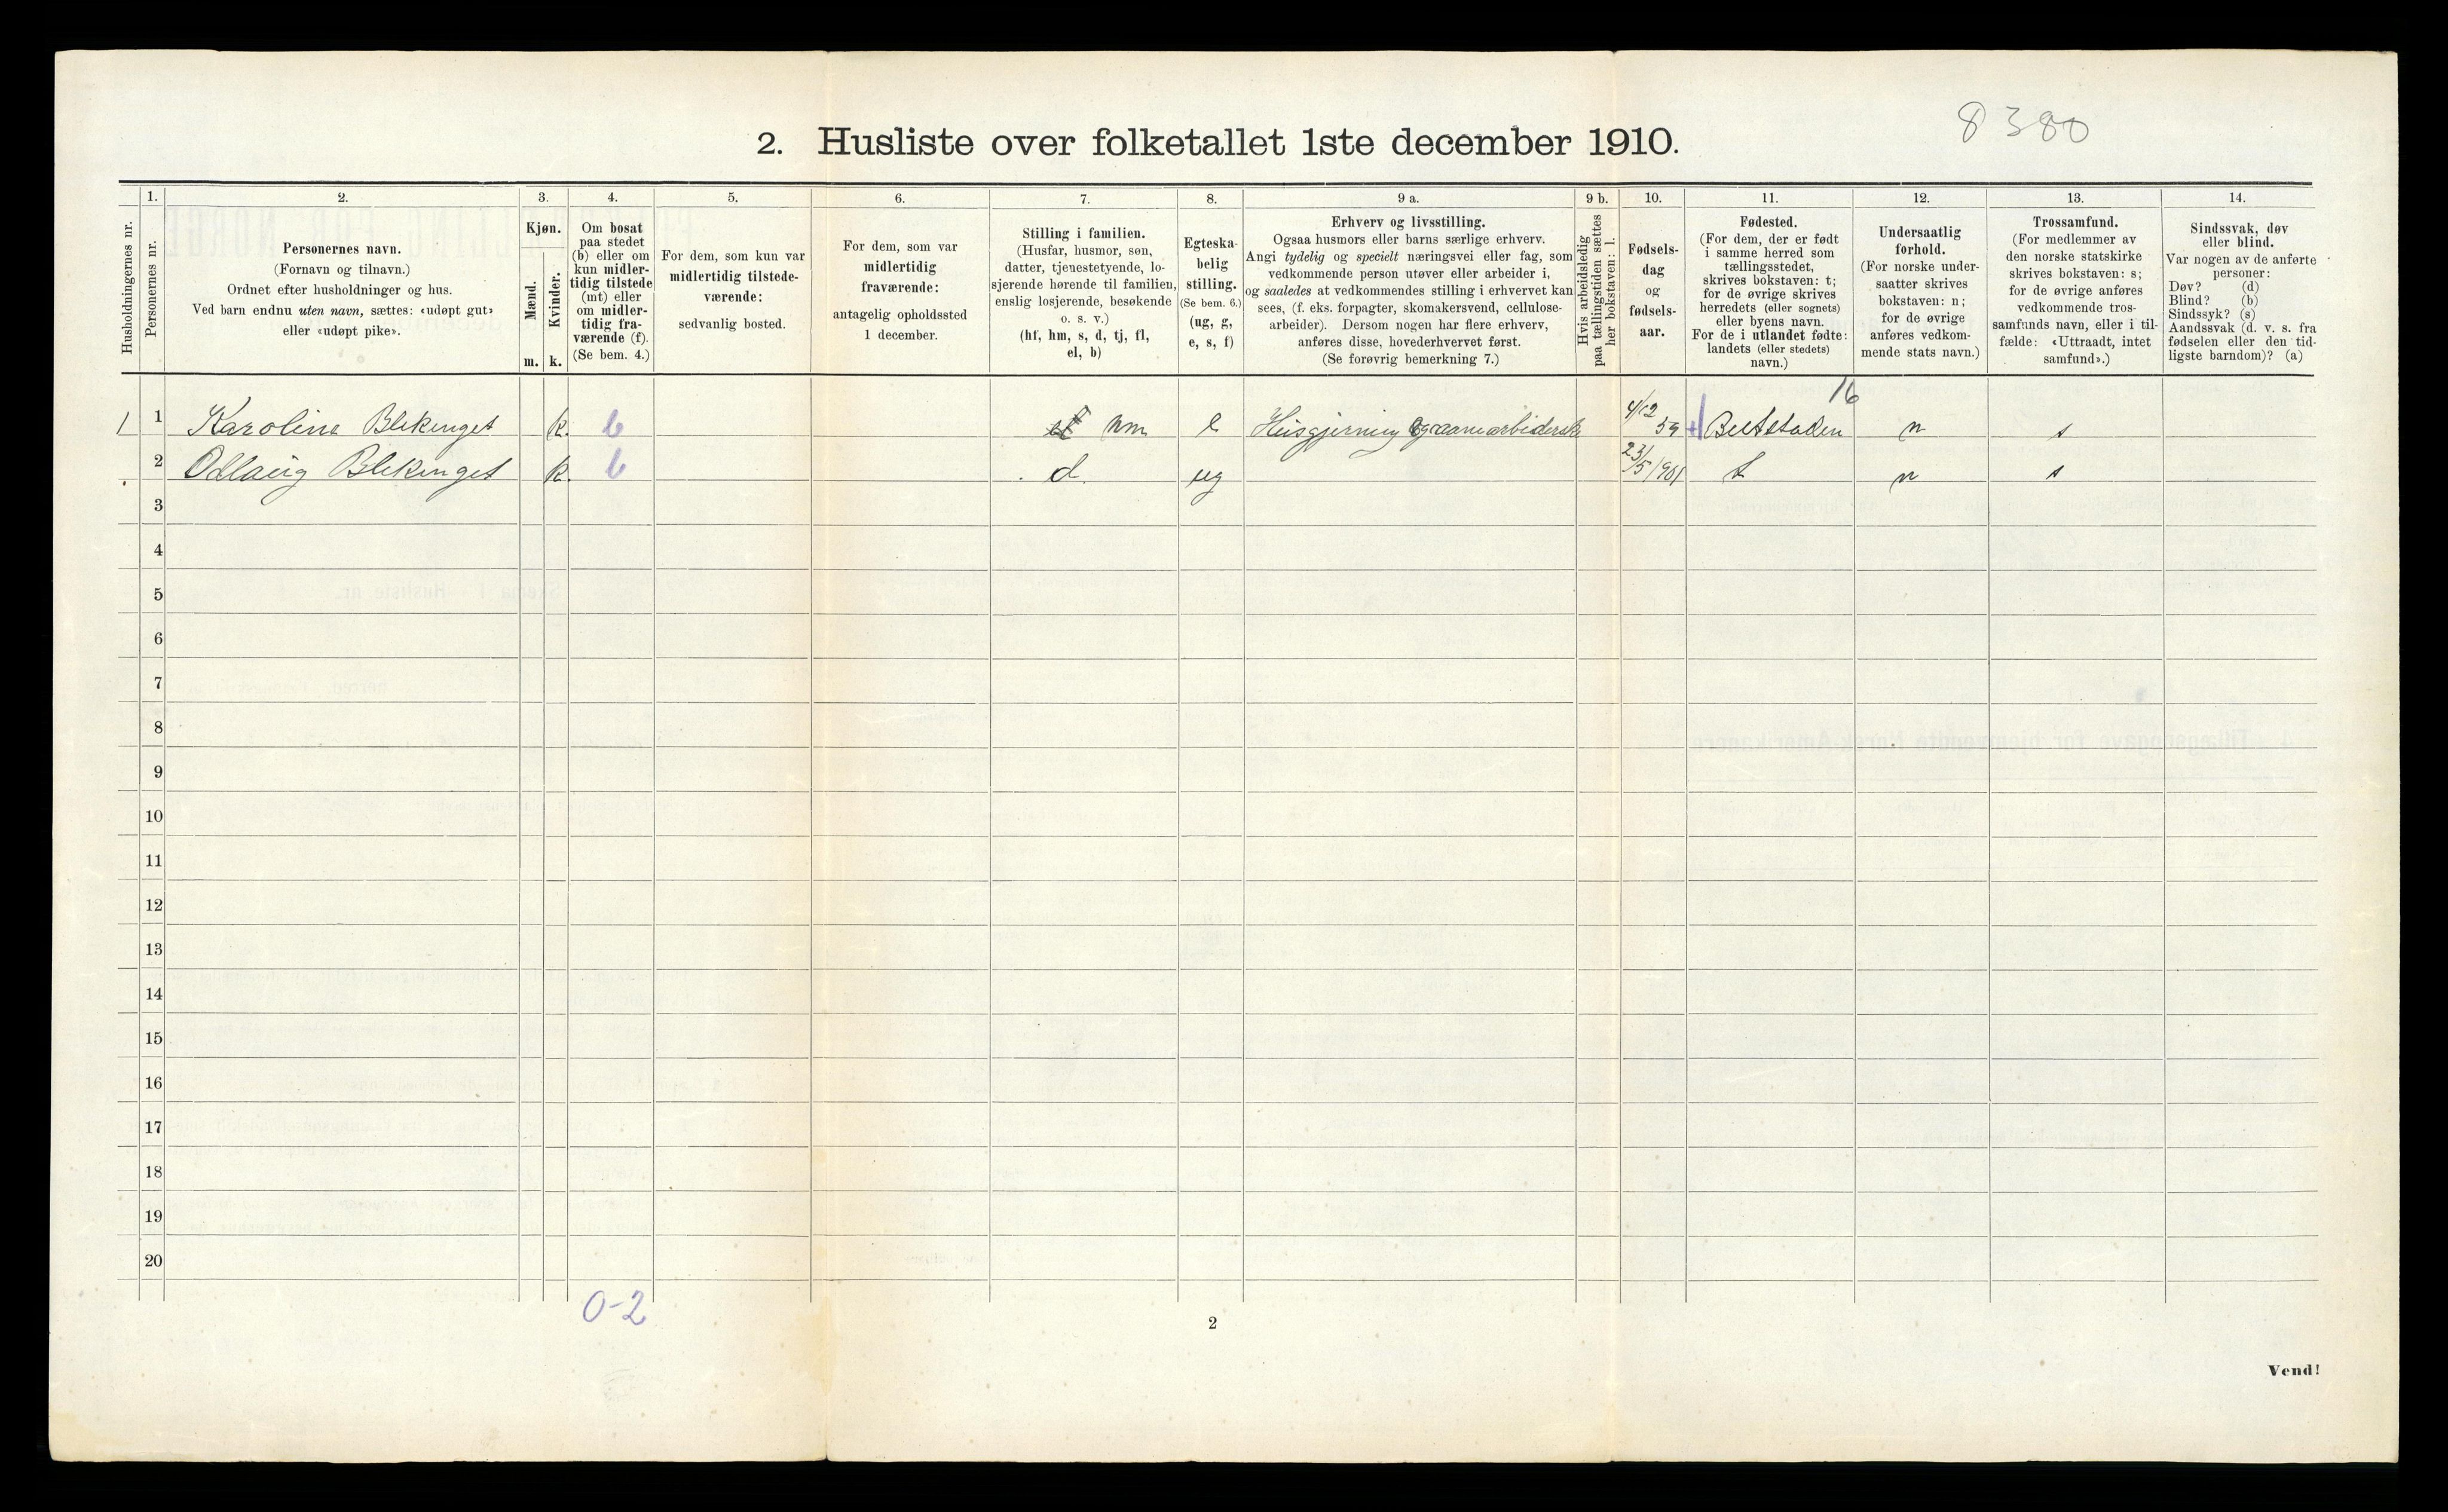 8380
2. Husliste over folketallet 1ste december 1910.
Husholdningernes nr.
1.
Personernes nr.
2.
Personernes navn.
(Fornavn og tilnavn.)
Ordnet efter husholdninger og hus.
Ved barn endnu uten navn, sættes: «udøpt gut»
eller «udøpt pike».
3.
Kjøn.
Mænd.
m.
Kvinder.
k.
4.
Om bosat
paa stedet
(b) eller om
kun midler-
tidig tilstede
(mt) eller
om midler-
tidig fra-
værende (f).
(Se bem. 4.)
5.
For dem, som kun var
midlertidig tilstede-
værende:
sedvanlig bosted.
6.
For dem, som var
midlertidig
fraværende:
antagelig opholdssted
1 december.
7.
Stilling i familien.
(Husfar, husmor, søn,
datter, tjenestetyende, lo-
sjerende hørende til familien,
enslig losjerende, besøkende
o. s. v.)
(hf, hm, s, d, tj, fl,
el, b)
8.
Egteska-
belig
stilling.
(Se bem. 6.)
(ug, g,
e, s, f)
9 a.
Erhverv og livsstilling.
Ogsaa husmors eller barns særlige erhverv.
Angi tydelig og specielt næringsvei eller fag, som
vedkommende person utøver eller arbeider i,
og saaledes at vedkommendes stilling i erhvervet kan
sees, (f. eks. forpagter, skomakersvend, cellulose-
arbeider). Dersom nogen har flere erhverv,
anføres disse, hovederhvervet først.
(Se forøvrig bemerkning 7.)
9 b.
Hvis arbeidsledig
paa tællingstiden sættes
her bokstaven: l.
10.
Fødsels-
dag
og
fødsels-
aar.
11.
Fødested.
(For dem, der er født
i samme herred som
tællingsstedet,
skrives bokstaven: t;
for de øvrige skrives
herredets (eller sognets)
eller byens navn.
For de i utlandet fødte:
landets (eller stedets)
navn.)
12.
Undersaatlig
forhold.
(For norske under-
saatter skrives
bokstaven: n;
for de øvrige
anføres vedkom-
mende stats navn.)
13.
Trossamfund.
(For medlemmer av
den norske statskirke
skrives bokstaven: s;
for de øvrige anføres
vedkommende tros-
samfunds navn, eller i til-
fælde: «Uttraadt, intet
samfund».)
14.
Sindssvak, døv
eller blind.
Var nogen av de anførte
personer:
Døv? (d)
Blind? (b)
Sindssyk? (s)
Aandssvak (d. v. s. fra
fødselen eller den tid-
ligste barndom)? (a)
16
1 1 Karoline Blekenget k. b hm e Husgjerning 4/12 59 Beitstaden n s
2 Odlaug Blekenget k. b d. ug 23/5 1901 t n s
3
4
5
6
7
8
9
10
11
12
13
14
15
16
17
18
19
20
0-2
2
Vend!